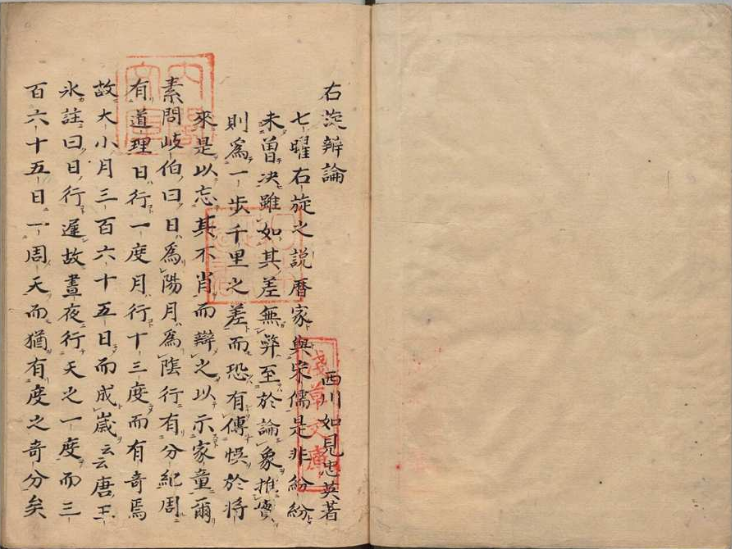 右旋辯論
西川如見忠英著
七曜右旋之説暦家與宋儒是非紛紛
未曽决雖如其差無弊至於論象推實
則為一歩千里之差而恐有傳悞於將
來是以忘其不肖而辯之以示家童爾
素問岐伯曰日為陽月為陰行有分紀周
有道理日行一度月行十三度而有奇焉
故大小月三百六十五日而成歳云云唐王
氷註曰日行遲故晝夜行天之一度而三
百六十五日一周天而猶有度之奇分矣
淺草文庫